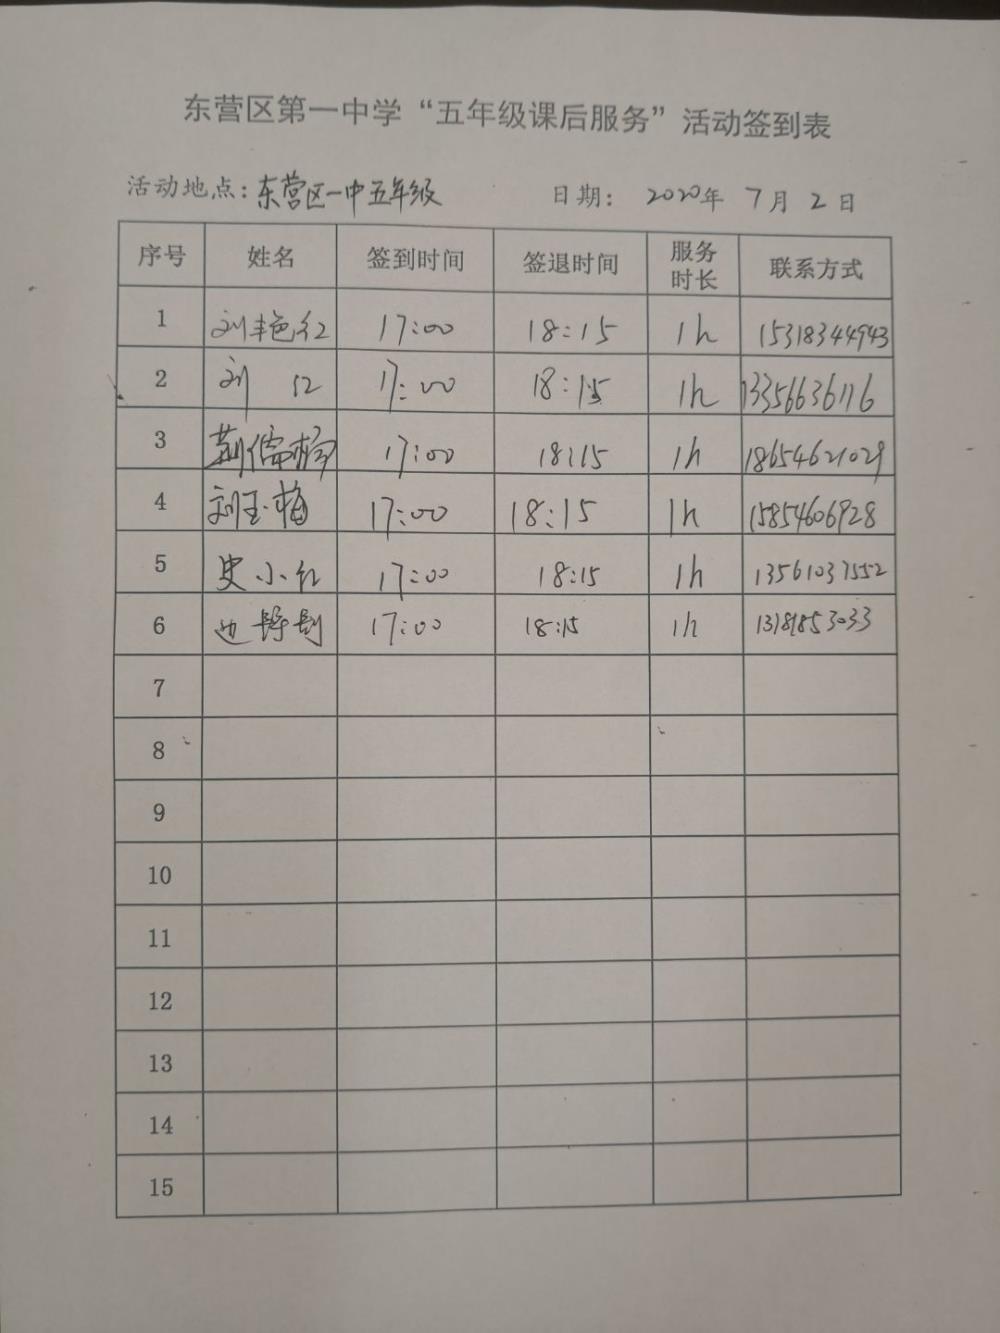 东营区第一中学“五年级课后服务”活动签到表
活动地点：东营区一中五年级 日期： 2020年 7月 2日
序号 姓名 签到时间 签退时间 服务时长 联系方式
1 刘艳红 17:00 18:15 1h 15318344943
2 刘 红 17:00 18:15 1h 13356636116
3 17:00 18:15 1h 18654621029
4 刘玉梅 17:00 18:15 1h 15854606928
5 史小红 17:00 18:15 1h 13561037552
6 17:00 18:15 1h 13181853033
7
8
9
10
11
12
13
14
15